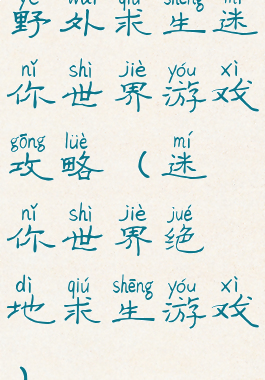 yě wài qiú shēng mí
野外求生迷
nǐ shì jiè yóu xì
你世界游戏
gōng lüè mí
攻略（迷
nǐ shì jiè jué
你世界绝
dì qiú shēng yóu xì
地求生游戏
）